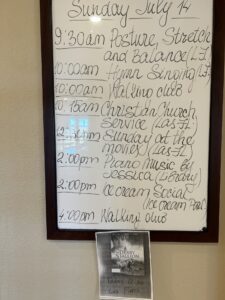 Sunday July 14
9:30am Posture, Stretch
and Balance (LF)
10:00am Hymn Sing
10:00am Walking club
10:15am Christian Church
Service (Las-FL)
Sunday at the
movies (Las-FL)
2:00pm Piano Music by
Jessica (Library)
2:00pm Ice cream Social
(Ice cream Parl
4:00am Walking club